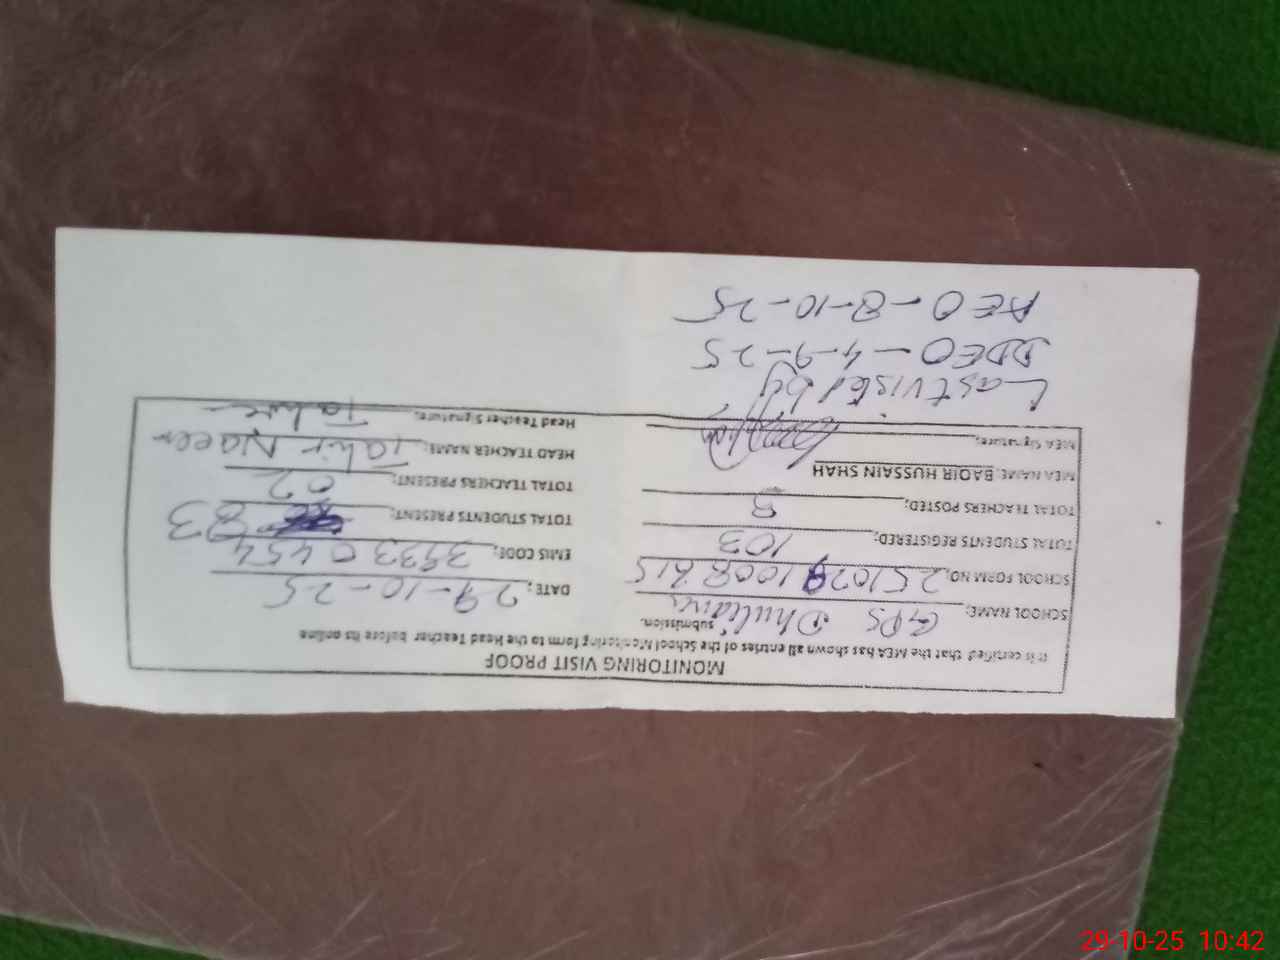 MONITORING VISIT PROOF
It is certified that the MEA has shown all entries of the School Monitoring form to the Head Teacher before its online submission.
SCHOOL NAME: GPS Dhuliana DATE: 29-10-25
SCHOOL FORM NO: 251029 1008 615 EMIS CODE: 37330454
TOTAL STUDENTS REGISTERED: 103 TOTAL STUDENTS PRESENT: 83
TOTAL TEACHERS POSTED: 3 TOTAL TEACHERS PRESENT: 02
MEA NAME: BAQIR HUSSAIN SHAH HEAD TEACHER NAME: Tahir Naeem
MEA Signature: Head Teacher Signature: Tahir
Last visited by
DDEO - 4-9-25
AEO - 8-10-25
29-10-25 10:42